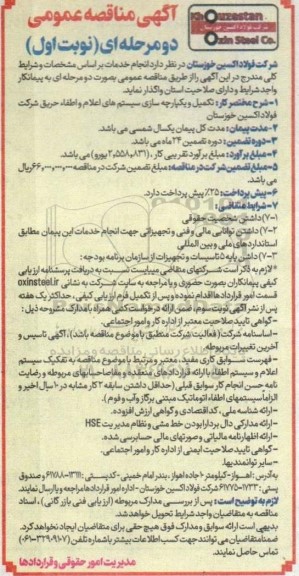 آگهی مناقصه عمومی
دو مرحله ای (نوبت اول)
Khouzestan
Oxin Steel Co.
شرکت فولاد اکسین خوزستان در نظر دارد انجام خدمات بر اساس مشخصات و شرایط
کلی مندرج در این آگهی را از طریق مناقصه عمومی بصورت دو مرحله ای به پیمانکار
واجد شرایط و دارای صلاحیت استان واگذار نماید.
۱- شرح مختصر کار: تکمیل و یکپارچه سازی سیستم های اعلام و اطفاء حریق شرکت
فولاد اکسین خوزستان
۲- مدت پیمان: مدت کل پیمان یکسال شمسی می باشد.
۳- دوره تضمین: دوره تضمین ۲۴ ماه می باشد.
۴- مبلغ برآورد: مبلغ برآورد تقریبی کار (۲،۵۵۸،۰۸۳۱ یورو) می باشد.
۵- مبلغ تضمین شرکت در مناقصه: مبلغ تضمین شرکت در مناقصه ریال
می باشد.
۶- پیش پرداخت: ۲۵٪ پیش پرداخت دارد.
۷- شرایط متقاضی:
۷-۱) داشتن شخصیت حقوقی
۷-۲) داشتن توانایی مالی و فنی و تجهیزاتی جهت انجام خدمات این پیمان مطابق
استانداردهای ملی و بین المللی
۷-۳) داشتن پایه ۵ تاسیسات و تجهیزات از سازمان برنامه بودجه:
*لازم به ذکر است شرکتهای متقاضی میبایست نسبت به دریافت پرسشنامه ارزیابی
کیفی پیمانکاران بصورت حضوری و یا مراجعه به سایت شرکت به نشانی oxinsteel.ir
قسمت امور قراردادها اقدام نموده و پس از تکمیل فرم ارزیابی کیفی، حداکثر یک هفته
پس از نشر آگهی نوبت سوم، ضمن ارائه درخواست کتبی همراه با مدارک مشروحه ذیل:
- گواهی تایید صلاحیت معتبر از اداره کار و امور اجتماعی.
- اساسنامه شرکت (فعالیت شرکت منطبق با موضوع مناقصه باشد)، آگهی تاسیس و
آخرین تغییرات مربوطه.
- فهرست سوابق کاری مفید، معتبر و مرتبط با موضوع مناقصه به تفکیک سیستم
اعلام و سیستم اطفاء با ارائه قراردادهای منعقده و مفاصاحسابهای مربوطه و رضایت
نامه حسن انجام کار سوابق قبلی (حداقل داشتن سابقه ۲ کار مشابه در ۱۰ سال اخیر و
الزاما سیستمهای اطفاء اتوماتیک مبتنی بر گاز و آب و فوم).
- ارائه شناسه ملی، کد اقتصادی و گواهی ارزش افزوده.
- ارائه مدارکی دال بر دارا بودن خط مشی و نظام مدیریت HSE
- ارائه اظهارنامه مالیاتی و صورتهای مالی حسابرسی شده.
- گواهی تایید صلاحیت ایمنی از اداره کار و امور اجتماعی.
- سایر توانمندیها.
به آدرس: اهواز - کیلومتر ۱۰ جاده اهواز، بندر امام خمینی - کدپستی: ۱۳۱۱۱-۶۱۷۸۸ و صندوق
پستی: شرکت فولاد اکسین خوزستان - اداره امور قراردادها مراجعه و یا ارسال نمایند.
لازم به توضیح است: پس از بررسی مدارک مربوطه (ارزیابی فنی بازرگانی)، اسناد
مناقصه به متقاضیان واجد شرایط تحویل خواهد شد.
بدیهی است ارائه سوابق و مدارک فوق هیچ حقی برای متقاضیان ایجاد نخواهد کرد.
ضمنا متقاضیان می توانند جهت کسب اطلاعات بیشتر با شماره تلفن (۳۲۹۰۹۱۰۷-۰۶۱)
تماس حاصل نمایند.
مدیریت امور حقوقی و قراردادها